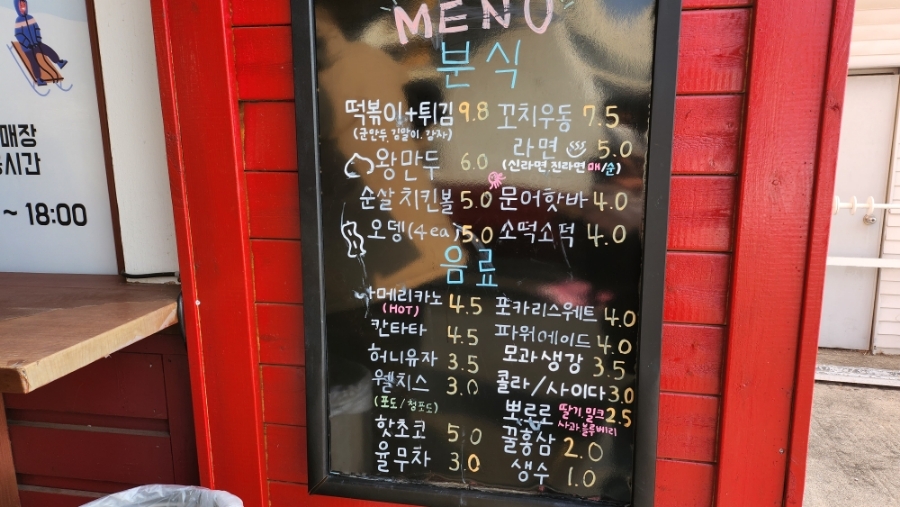 MENU
분식
떡볶이+튀김 9.8
(군만두, 김말이, 감자)
왕만두 6.0
순살치킨볼 5.0
오뎅(4ea) 5.0
꼬치우동 7.5
라면 5.0
(신라면, 진라면 매/순)
문어핫바 4.0
소떡소떡 4.0
음료
아메리카노 4.5
(HOT)
칸타타 4.5
허니유자 3.5
웰치스 3.0
(포도/청포도)
핫초코 5.0
율무차 3.0
포카리스웨트 4.0
파워에이드 4.0
모과생강 3.5
콜라/사이다 3.0
뽀로로 딸기, 밀크 2.5
사과 블루베리
꿀홍삼 2.0
생수 1.0
매장
시간
~ 18:00